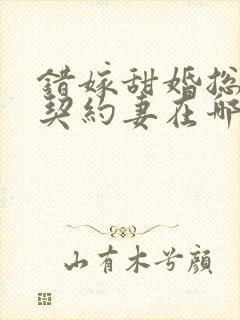 錯嫁甜婚总
契約妻在哪
山有木兮顔